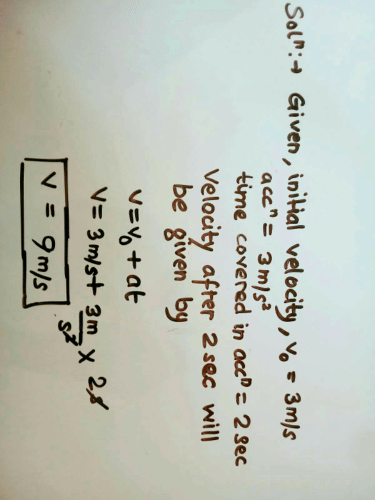 Solⁿ:→ Given, initial velocity, v₀ = 3m/s
accⁿ = 3m/s²
time covered in accⁿ = 2 sec
Velocity after 2 sec will
be given by
v = v₀ + at
v = 3m/s + 3m/s² × 2s
v = 9m/s